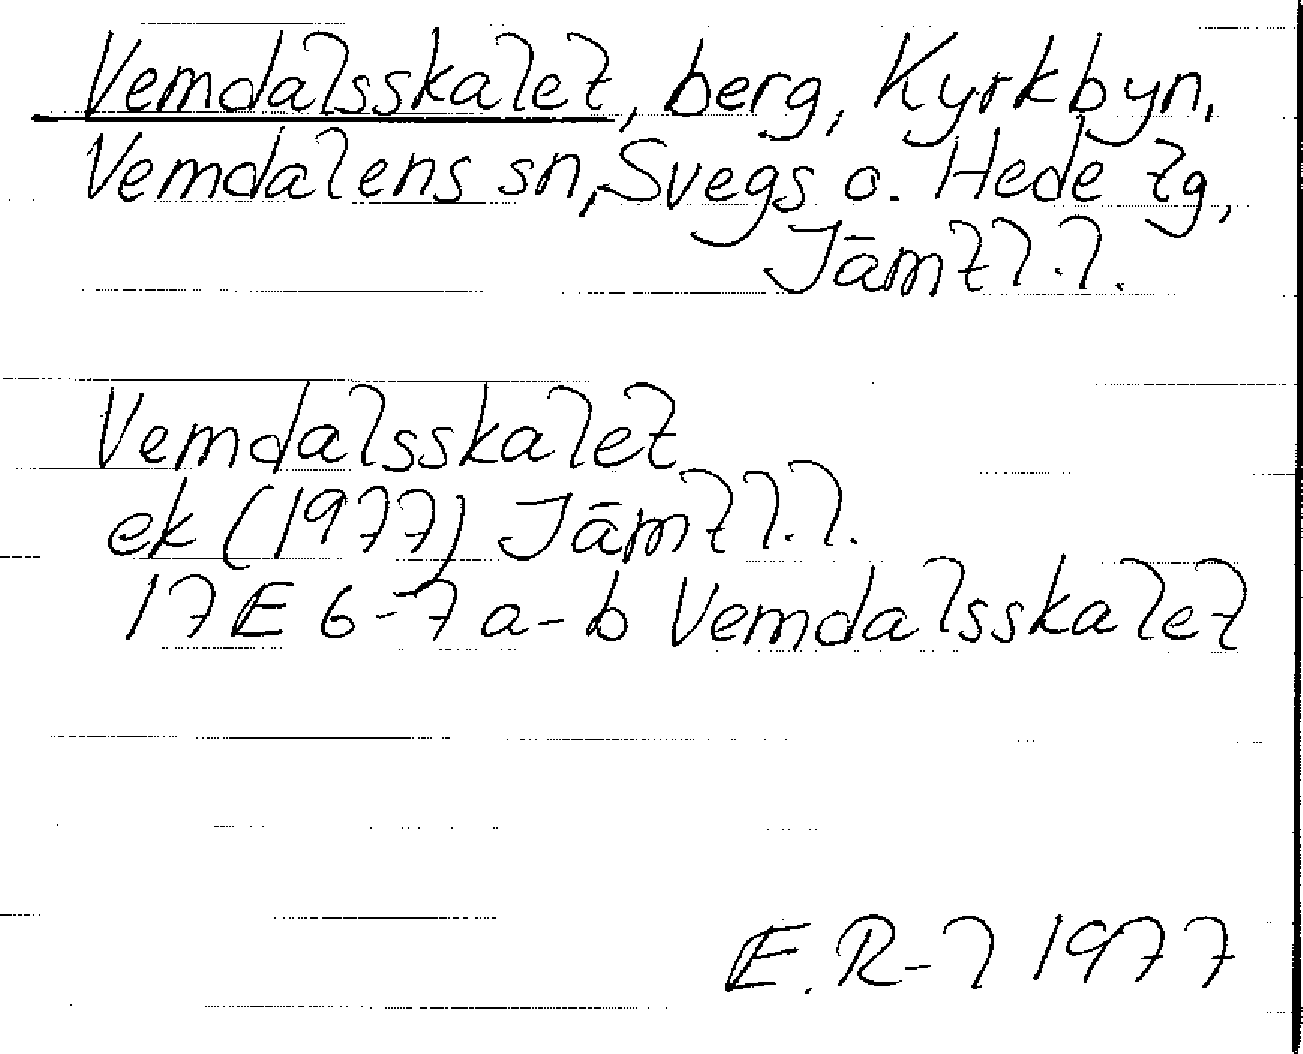 Vemdalsskalet, berg, Kyrkbyn,
Vemdalens sn, Svegs o. Hede tg,
Jämtl.l.
Vemdalsskalet
ek (1977) Jämtl.l.
17E 6-7 a-b Vemdalsskalet
E. R-l 1977